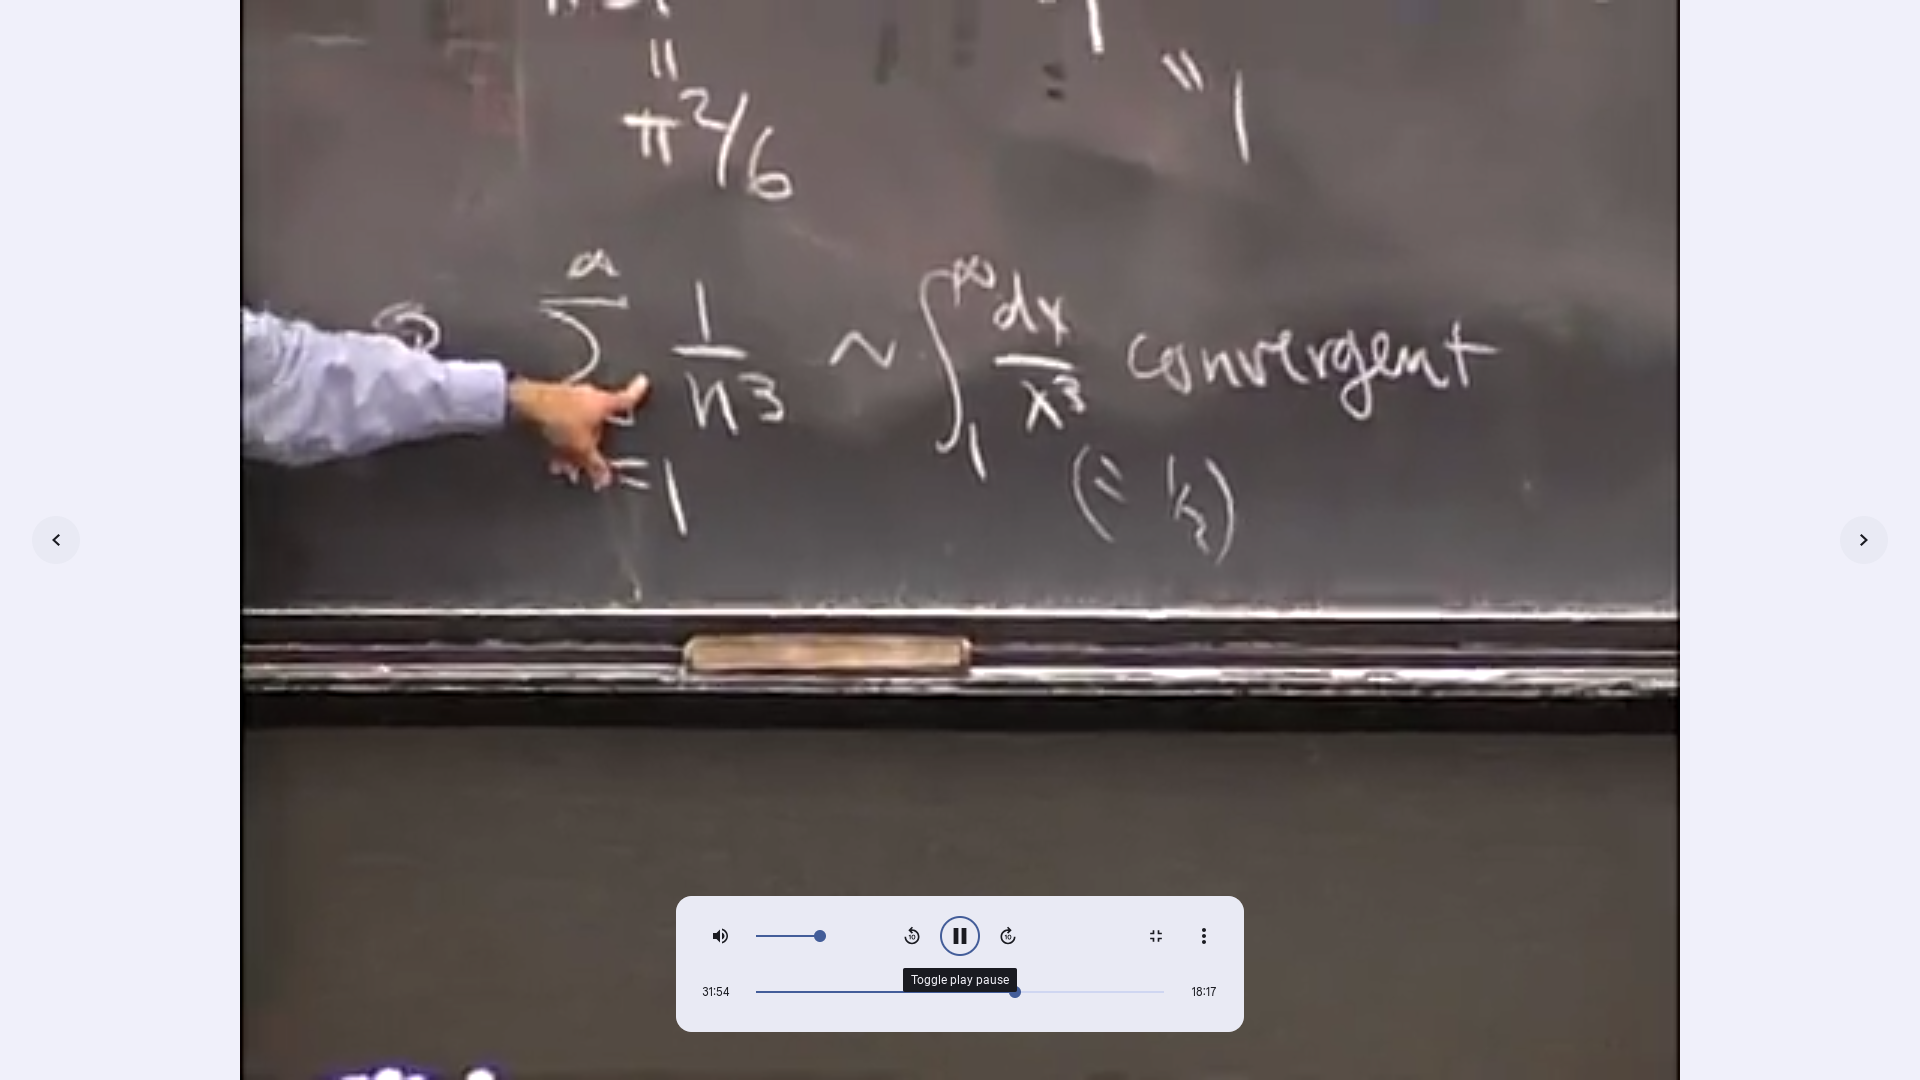 =
π²/6
= 1
∑ 1/n³ ~ ∫₁^∞ dx/x³ convergent
=1
(= 1/2)
10
10
Toggle play pause
31:54
18:17